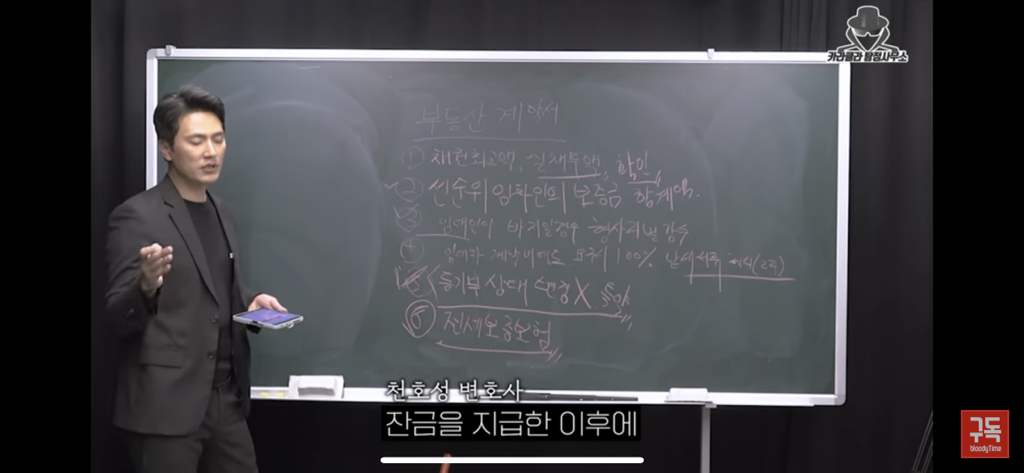 카라큘라 탐정사무소
부동산 계약서
① 채권최고액, 실채무액, 확인
② 선순위 임차인의 보증금 합계액.
③ 임대인이 바뀌일경우 형사처벌 감수
④ 요구시 100%
⑤ 등기부 상태 변경 X
⑥ 전세보증보험
천호성 변호사
잔금을 지급한 이후에
구독
bloodyTime